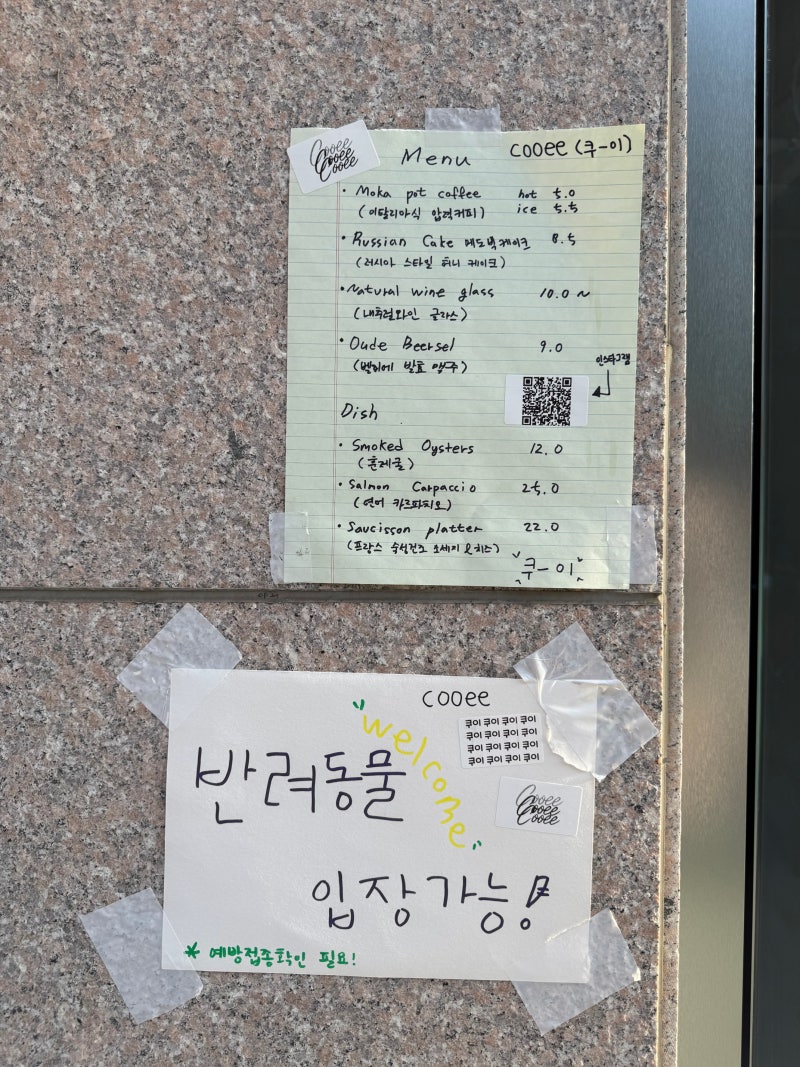 Cooee
Cooee
Cooee
Menu
cooee (쿠-이)
· Moka pot coffee hot 5.0
(이탈리아식 압력커피) ice 5.5
· Russian Cake 메도빅케이크 8.5
(러시아 스타일 허니 케이크)
· Natural wine glass 10.0 ~
(내추럴와인 글라스)
· Oude Beersel 9.0
(벨기에 발효 맥주)
인스타그램
Dish
· Smoked Oysters 12.0
(훈제굴)
· Salmon Carpaccio 25.0
(연어 카르파치오)
· Saucisson platter 22.0
(프랑스 숙성건조 소세지 &치즈)
쿠-이
cooee
"welcome"
쿠이 쿠이 쿠이 쿠이
쿠이 쿠이 쿠이 쿠이
쿠이 쿠이 쿠이 쿠이
쿠이 쿠이 쿠이 쿠이
반려동물
Cooee
Cooee
Cooee
입장가능!
* 예방접종확인 필요!